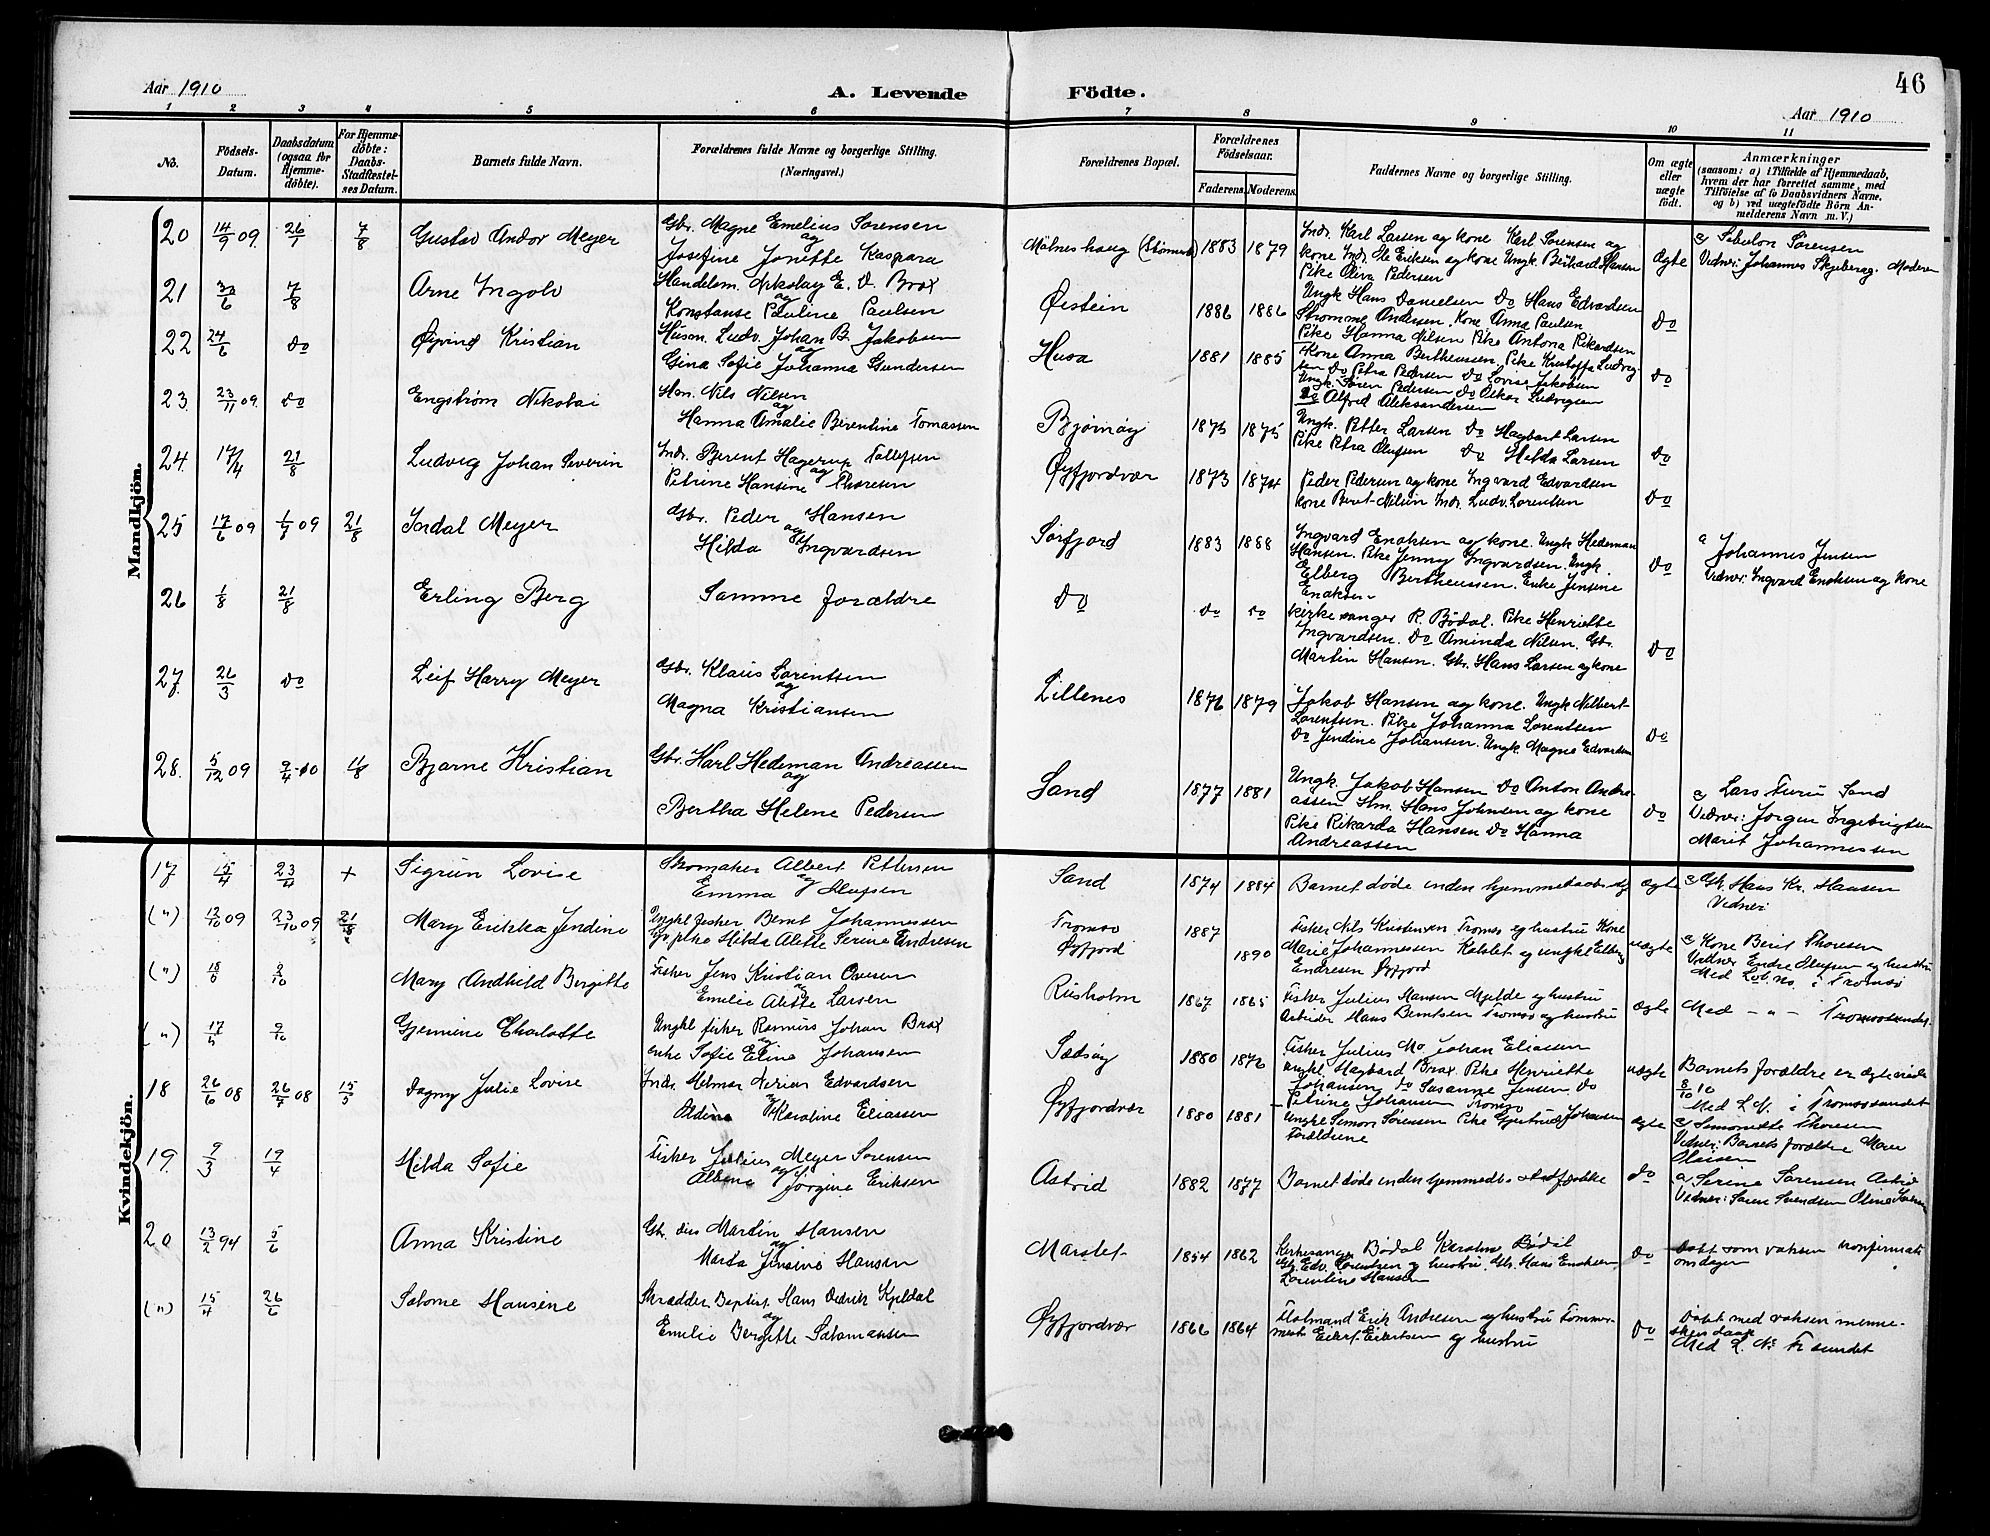 46
Aar 1910
A. Levende Födte.
Aar 1910
1 2 3 4 5 6 7 8 9 10 11
No.
Födsels-Datum.
Daabsdatum (ogsaa for Hjemme-döbte).
For Hjemme-döbte: Daabs-Stadfæstel-ses Datum.
Barnets fulde Navn.
Forældrenes fulde Navne og borgerlige Stilling.
(Næringsvei.)
Forældrenes Bopæl.
Forældrenes Födselsaar.
Faderens. Moderens.
Faddernes Navne og borgerlige Stilling.
Om ægte eller uægte födt.
Anmærkninger
(saasom: a) i Tilfælde af Hjemmedaab,
hvem der har forrettet samme, med
Tilföielse af to Daabsvidners Navne,
og b) ved uægtefödte Börn An-
melderens Navn m. V.)
Mandkjön.
20 14/9 09 26/1 7/8 Gustav Andor Meyer
Gbr. Magne Emelius Sørensen
og
Josefine Jonette Kaspara
1883 1879
Indr. Karl Larsen og kone Karl Sørensen og
kone Indr. Ole Eriksen og kone Ungk. Berhard Hansen
Pike Oliva Pedersen
Ægte
Sørensen
Vidner: Johannes Skjeberg. Moderen
21 30/6 7/8 Arne Ingolv
Handelsm. Nikolay E. D. Brox
og
Konstanse Pauline Paulsen
Øistein 1886 1886
Ungk Hans Danielsen Do Hans Edvardsen
Strømme Andersen. Kone Anna Paulsen
Pike Hanna Nilsen Pike Antona Rikardsen
Do
22 24/6 do Øyvind Kristian
Husm. Ludv. Johan B. Jakobsen
og
Gina Sofie Johanna Gundersen
Husa 1881 1885
Kone Anna Bertheussen, Pike Kristoffa Ludvig-
sen Do Petra Pedersen Do Lovise Jakobsen
Ungk. Søren Pedersen do Oskar Ludvigsen
Do Alfred Aleksandersen
Do
23 23/11 09 do Engstrøm Nikolai
Nils Nilsen
og
Hanna Amalie Berentine Tomassen
Bjørnøy 1875 1875
Ungk. Petter Larsen Do Hagbart Larsen
Pike Petra Olufsen Do Hilda Larsen
Do
24 17/4 21/8 Ludvig Johan Severin
Indr. Berent Hagerup Tollefsen
og
Petrine Hansine Thoresen
Øyfjordvær 1873 1874
Peder Pedersen og kone Ingvard Edvardsen
kone Beret Nilsen Indr. Ludv. Lorentsen
Do
25 17/6 09 1/7 09 21/8 Indal Meyer
Gbr. Peder Hansen
og
Hilda Ingvardsen
Sørfjord 1883 1888
Ingvard Enoksen og kone. Ungk Hedeman
Hansen. Pike Jenny Ingvardsen. Ungk.
Elberg Bertheussen. Enke Jensine
Enoksen
Do
a Johannes Jensen
Vidner: Ingvard Enoksen og kone
26 1/8 21/8 Erling Berg
Samme forældre
Do do do
Kirkesanger R. Bødal. Pike Henriette
Ingvardsen. Do Aminda Nilsen. Gbr.
Martin Hansen. Gbr. Hans Larsen og kone
Do
27 26/3 do Leif Harry Meyer
Gbr. Klaus Lorentsen
og
Magna Kristiansen
Lillenes 1876 1879
Jakob Hansen og kone. Ungk Nilbert
Lorentsen. Pike Johanna Lorentsen
Do Jendine Johansen. Ungk. Magne Edvardsen
Do
28 5/12 09 9/4 10 11/8 Bjarne Kristian
Gbr. Karl Hedeman Andreassen
og
Bertha Helene Pedersen
Sand 1877 1881
Ungk. Jakob Hansen Do Anton Andre-
assen Hm. Hans Johnsen og kone
Pike Rikarda Hansen Do Hanna
Andreassen
Do
a Lars Furu Sand
Vidner: Jørgen Ingebrigtsen
Marit Johannessen
Kvindekjön.
17 15/4 23/4 + Sigrun Lovise
Skomaker Albert Pettersen
og
Emma Olufsen
Sand 1874 1884
Barnet døde inden hjemmedaabs
ægte
Gbr. Hans Kr. Hansen
Vidner
(") 12/10 09 23/10 09 21/8 Mary Erikka Jendine
Ungkl fisker Bernt Johannessen
og pike Hilda Alette Serine Endresen
Tromsø
Øyfjord
1887 1890
Fisker Nils Kristensen Tromsø og hustru Kone
Marie Johannessen Kaldslet og ungkl Elberg
Endresen Øyfjord
uægte
Kone Berit Thoresen
Vidner Endre Olufsen og hustru
Med i Tromsø
(") 18/5 9/10 Mary Andhild Bergitte
Fisker Jens Kristian Ovesen
og
Emelie Alette Larsen
Risholm 1867 1865
Fisker Julius Hansen Mjelde og hustru
Arbeider Hans Berntsen Tromsø og hustru
ægte
Med - " - Tromsøsundet
(") 17/5 9/10 Gjermine Charlotte
Ungkl fisker Johan Brox
og
enke Sofie Eline Johansen
1880 1876
Fisker Julius Johan Eliassen
Ungkl. Hagbard Brox. Pike Henriette
Johansen do Susanne Jensen do
Petrine Johansen Tromsø
uægte
Barnets forældre er ægteviede
8/10 10
Med L. N. i Tromsøsundet
18 26/6 08 26/7 08 15/5 Dagny Julie Lovise
Indr. Hilmar Edvardsen
og
Karoline Eliassen
Øyfjordvær 1880 1881
Ungkl Simon Sørensen Pike Gjertrud Johansen
Forældrene
ægte
Simonette Thoresen
Vidner: Barnets forældre
Olaisen
19 9/3 19/4 Hilda Sofie
Fisker Julius Meyer Sørensen
og
Albine Jørgine Eriksen
Astrid 1882 1877
Barnet døde inden hjemmedb.
do
a Serine Sørensen Astrid
Vidner: Søren Svendsen
20 13/2 94 5/6 Anna Kristine
Gbr. Martin Hansen
og
Marta Jensine Hansen
Marslet 1854 1862
Kirkesanger Bødal Bødal
Gbr. Edv. Lorentsen og hustru, Gbr. Hans Enoksen
Lorentine Hansen
do
Døbt som voksen konfirmati
onsdagen
(") 15/4 26/6 Salome Hansine
Skrædder Baptist. Hans Didrik Kjeldal
og
Emelie Bergitte Salomonsen
Øyfjordvær 1866 1864
Erik Andresen og hustru Tommer-
mest Eilert Eilertsen og hustru
do
Døbt med voksen menne-
Med L. N: Tr sundet